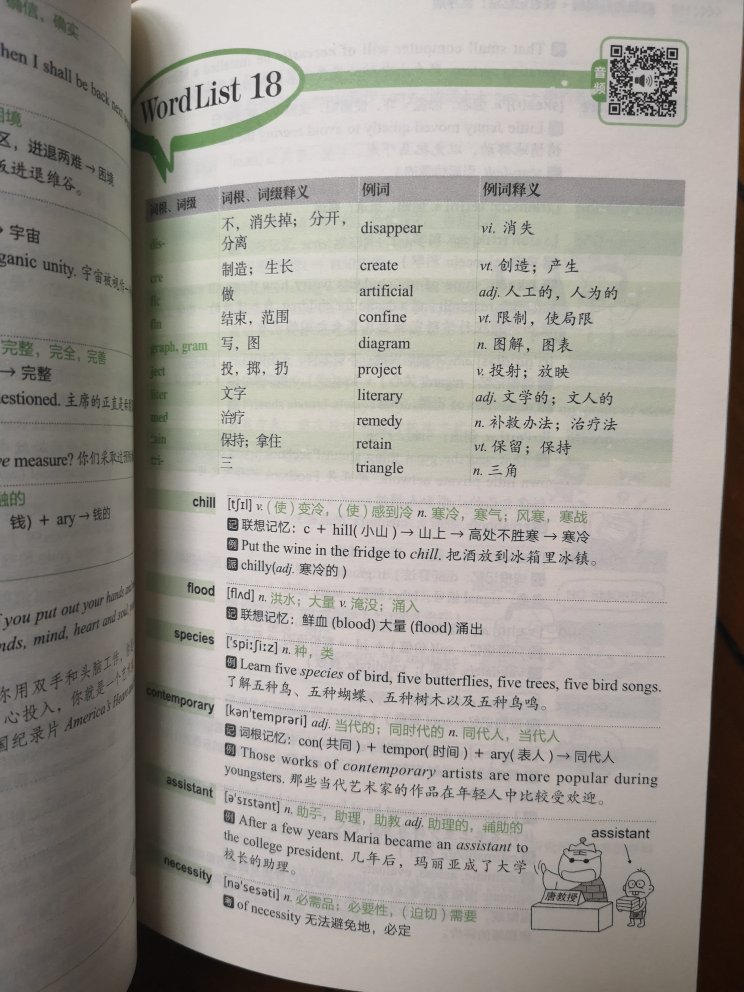 确信，确实
hen I shall be back next
困境
区，进退两难→困境
反进退维谷。
→宇宙
ganic unity. 宇宙被视作一
完整，完全，完善
→完整
estioned. 主席的正直是
ve measure? 你们采取过预
融的
钱) + ary→钱的
f you put out your hands and
nds, mind, heart and soul
你用双手和头脑工作，
心投入，你就是一个艺
国纪录片 America's Heart and
Word List 18
音频
词根、词缀 词根、词缀释义 例词 例词释义
dis- 不，消失掉；分开，分离 disappear vi. 消失
cre 制造；生长 create vt. 创造；产生
fic 做 artificial adj. 人工的，人为的
fin 结束，范围 confine vt. 限制，使局限
graph, gram 写，图 diagram n. 图解，图表
ject 投，掷，扔 project v. 投射；放映
liter 文字 literary adj. 文学的；文人的
med 治疗 remedy n. 补救办法；治疗法
tain 保持；拿住 retain vt. 保留；保持
tri- 三 triangle n. 三角
chill [tʃɪl] v. (使)变冷，(使)感到冷 n. 寒冷，寒气；风寒，寒战
记 联想记忆：c + hill(小山)→山上→高处不胜寒→寒冷
例 Put the wine in the fridge to chill. 把酒放到冰箱里冰镇。
派 chilly(adj. 寒冷的)
flood [flʌd] n. 洪水；大量 v. 淹没；涌入
记 联想记忆：鲜血(blood)大量(flood)涌出
species ['spiːʃiːz] n. 种，类
例 Learn five species of bird, five butterflies, five trees, five bird songs.
了解五种鸟、五种蝴蝶、五种树木以及五种鸟鸣。
contemporary [kən'temprəri] adj. 当代的；同时代的 n. 同代人，当代人
记 词根记忆：con(共同) + tempor(时间) + ary(表人)→同代人
例 Those works of contemporary artists are more popular during
youngsters. 那些当代艺术家的作品在年轻人中比较受欢迎。
assistant [ə'sɪstənt] n. 助手，助理，助教 adj. 助理的，辅助的
例 After a few years Maria became an assistant to
the college president. 几年后，玛丽亚成了大学
校长的助理。
assistant
唐教授
necessity [nə'sesəti] n. 必需品；必要性，(迫切)需要
考 of necessity 无法避免地，必定